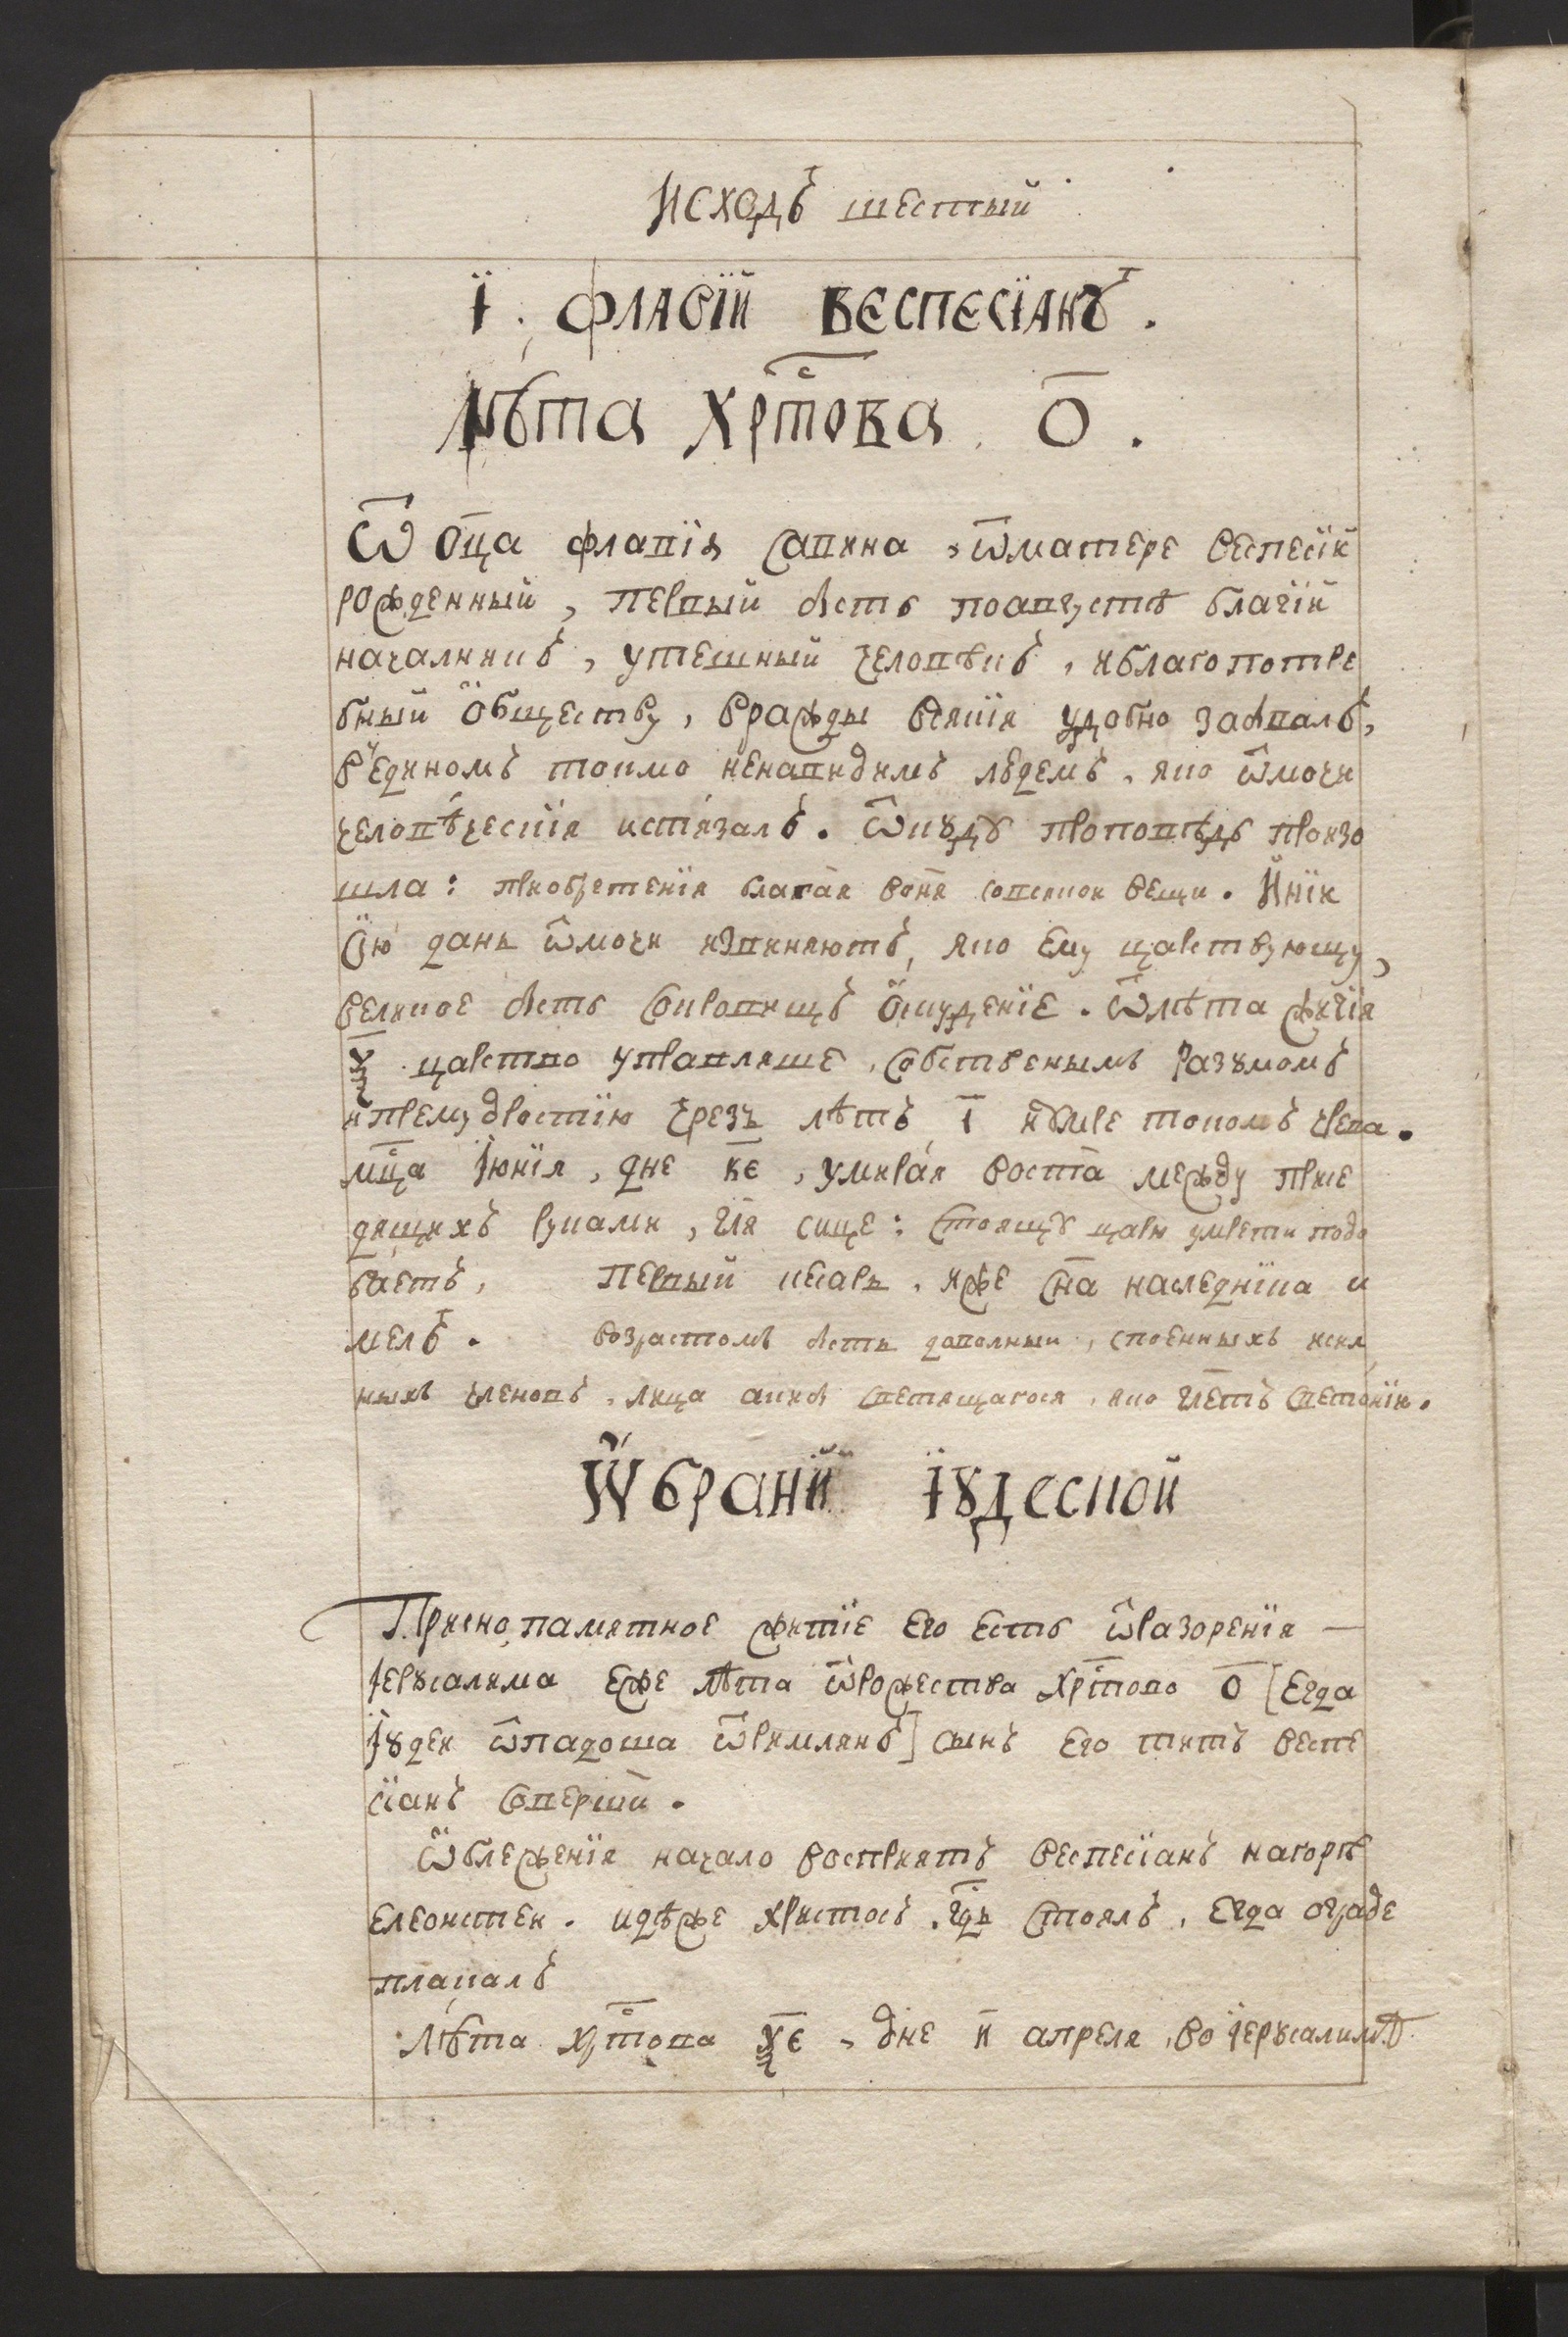 Исходъ шестый
Ї. Флавїй Веспесїанъ.
Лѣта Хрⷭ҇това о҃.
Ѿ ѻ҆ц҃а флавїа савина, ѿматере веспесїи
рожденный, первый бысть поавгустѣ благїй
началникъ, утешный человѣкъ, иблагопотре
бный ѻбществу, вражды всякїя удобно забывалъ,
въединомъ токмо ненавидимъ людемъ, яко ѿмочи
человѣческїя истязалъ. Ѿкуду проповѣдь произо
шла: приобретенїя благая воня совсякои вещи. Инїи
сїю дань ѿмочи извиняютъ, яко ему царствующу,
великое бысть сокровищъ ѻскуденїе. Ѿлѣта жития
царство управляше, собственымъ разумомъ
ипремудростїю чрезъ лѣтъ і҃ иумре токомъ чрева.
мц҃а Їюнїя, дне к҃е, умирая воста между приее
дящихъ руками, гл҃я сице: Стоящу царю умрети подо
баетъ, первый кесарь, иже сн҃а наследнїка и
мелъ. возрастомъ бысть доволный, споенныхъ исил
ныхъ членовъ, лица аки бы светящагося, яко гл҃етъ светонїи.
Ѽ брани Їудесной
Приснопамятное житїе его есть ѿразоренїя
Їерусалима еже лѣта ѿрождества Хрⷭ҇това о҃ [егда
Їудеи ѿпадоша ѿримлянъ] сынъ его титъ веспе
сїанъ совершил.
Ѽблеженїя начало восприятъ веспесїанъ нагорѣ
елеонстеи. идѣже христосъ гд҃ь стоялъ, егда ограде
плакалъ
Лѣта хрⷭ҇това ѯ҃е, дне и҃ апреля, во їерусалимѣ